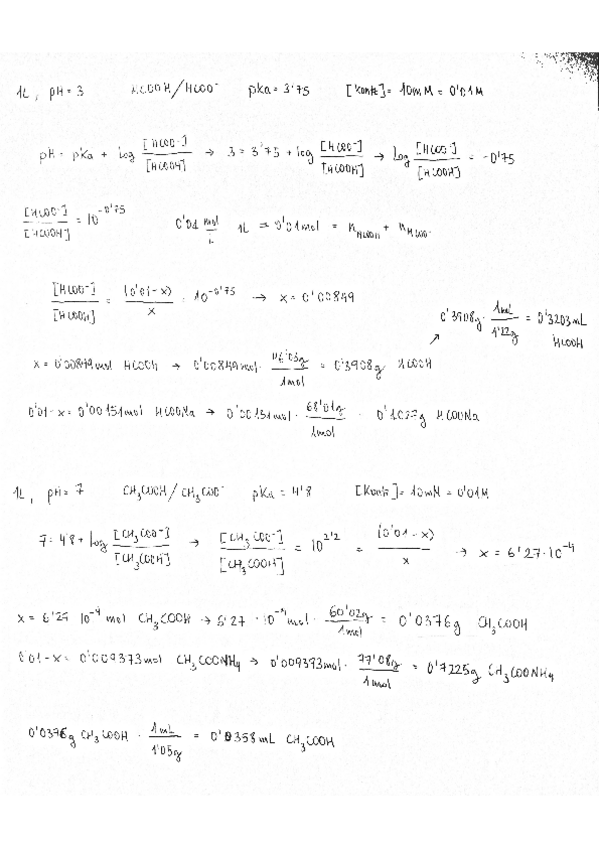 1L, pH = 3 HCOOH/HCOO⁻ pKa = 3'75 [Kontz] = 10mM = 0'01M
pH = pKa + log [HCOO⁻]/[HCOOH] → 3 = 3'75 + log [HCOO⁻]/[HCOOH] → log [HCOO⁻]/[HCOOH] = -0'75
[HCOO⁻]/[HCOOH] = 10^-0'75 0'01 mol/L · 1L = 0'01mol = n HCOOH + n HCOO⁻
[HCOO⁻]/[HCOOH] = (0'01-x)/x = 10^-0'75 → x = 0'00849
0'3908g · 1mL/1'22g = 0'3203mL HCOOH
x = 0'00849mol HCOOH → 0'00849mol · 46'03g/1mol = 0'3908g HCOOH
0'01-x = 0'00151mol HCOONa → 0'00151mol · 68'01g/1mol = 0'1027g HCOONa
1L, pH = 7 CH₃COOH/CH₃COO⁻ pKa = 4'8 [Kontz] = 10mM = 0'01M
7 = 4'8 + log [CH₃COO⁻]/[CH₃COOH] → [CH₃COO⁻]/[CH₃COOH] = 10^2'2 = (0'01-x)/x → x = 6'27·10⁻⁴
x = 6'27 10⁻⁴ mol CH₃COOH → 6'27 · 10⁻⁴ mol · 60'02g/1mol = 0'0376g CH₃COOH
0'01-x = 0'009373mol CH₃COONH₄ → 0'009373mol · 77'08g/1mol = 0'7225g CH₃COONH₄
0'0376g CH₃COOH · 1mL/1'05g = 0'0358mL CH₃COOH